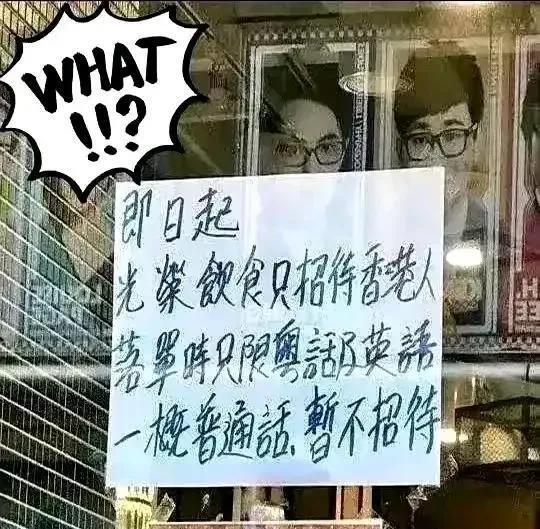 WHAT
!!?
即日起
光榮飲食只招待香港人
落單時只限粵話及英語
一概普通話、暫不招待